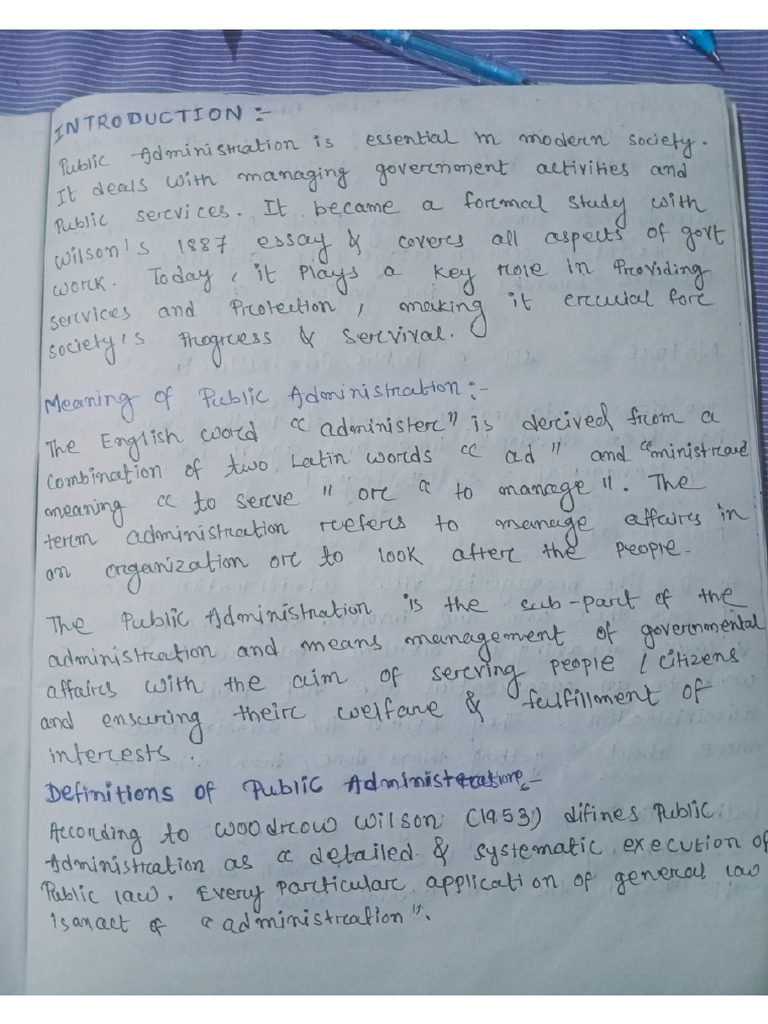 INTRODUCTION :-
Public Administration is essential in modern society.
It deals with managing government activities and
Public services. It became a formal study with
Wilson's 1887 essay & covers all aspects of govt
work. Today, it plays a key role in Providing
services and Protection, making it crucial for
society's Progress & Servival.
Meaning of Public Administration :-
The English word "administer" is derived from a
combination of two Latin words "ad" and "ministrare
meaning "to serve" or "to manage". The
term administration refers to manage affairs in
an organization or to look after the people.
The Public Administration is the sub-part of the
administration and means management of governmental
affairs with the aim of serving people / citizens
and ensuring their welfare & fulfillment of
interests.
Definitions of Public Administration:-
According to Woodrow Wilson (1953) difines Public
Administration as a detailed & systematic execution of
Public law. Every particular application of general law
is an act of "administration".